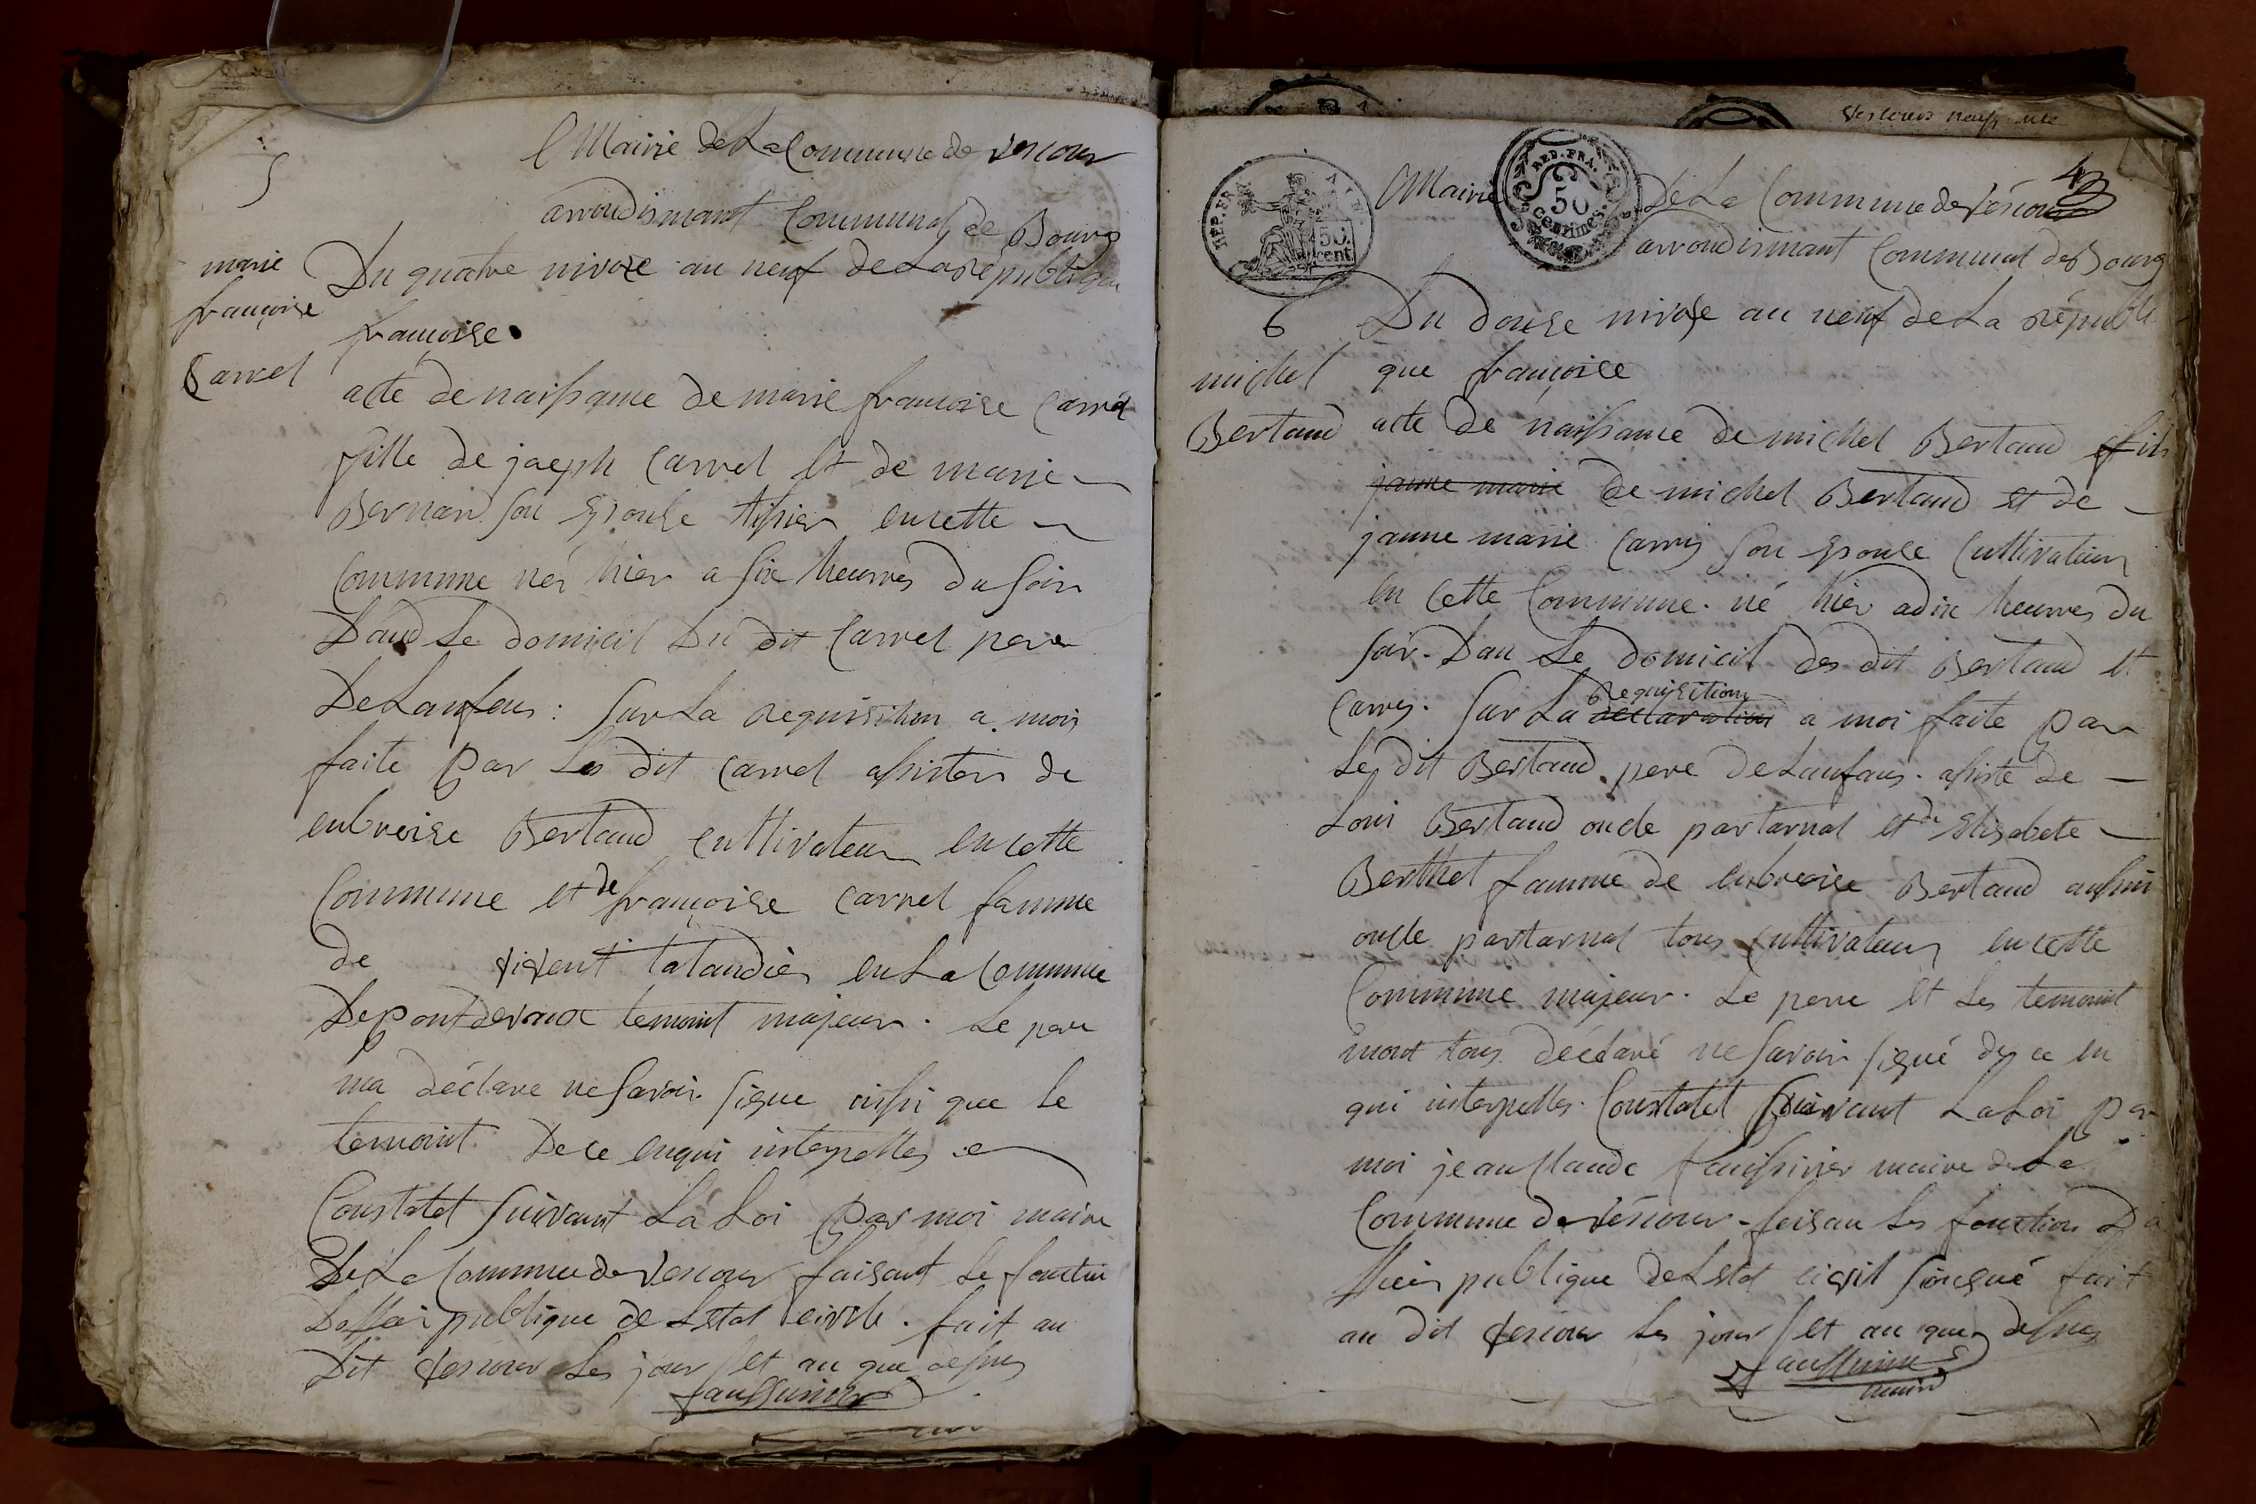 5
Mairie de La Commune de vescour
arrondismant Communal de Bourg
marie
françoise
Carrel
Du quatre nivose an neuf de La républiqu
françoise.
acte de naissance de marie francoise Carrel
fille de joseph Carrel et de marie
Bernard son Epouse tissier en cette
Commune née hier a six heurres du soir
Dans Le domicil Du dit Carrel pere
De Lanfans : sur La requisition a mois
faite par Les dit Carrel assistés de
enbroise Bertaud cultivateur en cette
Commune et de françoise Carrel famme
de vivent talandier en La Commune
De pont devaux temoint majeurs. Le pere
ma déclare ne savoir signe insi que le
temoint De ce enqui interpelles
Constatet suivant La Loi par moi maire
De La Commune de vescour faisant Le fonction
Doffier publique de Lestat civile. fait au
Dit vescour Les jour et an que dessus
vescours naiss
REP. FRA.
50
cent.
REP. FRA.
50
centimes.
Mairie De La Commune de véscour
43
arrondismant Communal de Bourg
6
michel
Bertaud
Du douse nivose an neuf de La républi
que françoise
acte de naissance de michel Bertaud fils
jeanne marie de michel Bertaud et de
janne marie Carry son Epouse Cultivateur
en Cette Commune. né hier a dix heurres du
soir. Dan Le domicil des dit Bertaud et
requisition
Carry. sur La déclaration a moi faite par
Le dit Bertaud pere de Lanfans. assisté de
Loui Bertaud oncle partarnal et de Elisabete
Berthet famme de enbroise Bertaud aussi
oncle partarnal tous cultivateurs en cette
Commune majeur. Le pere et Les temoint
mont tous déclaré ne savoir signé de ce en
qui interpelles. Constatet suivant La Loi par
moi jean claude maire de La
Commune de véscour. faisan Les fonction Do
ffier publique de Lestat civil signé fait
au dit vescour Les jour et an que dessus
maire